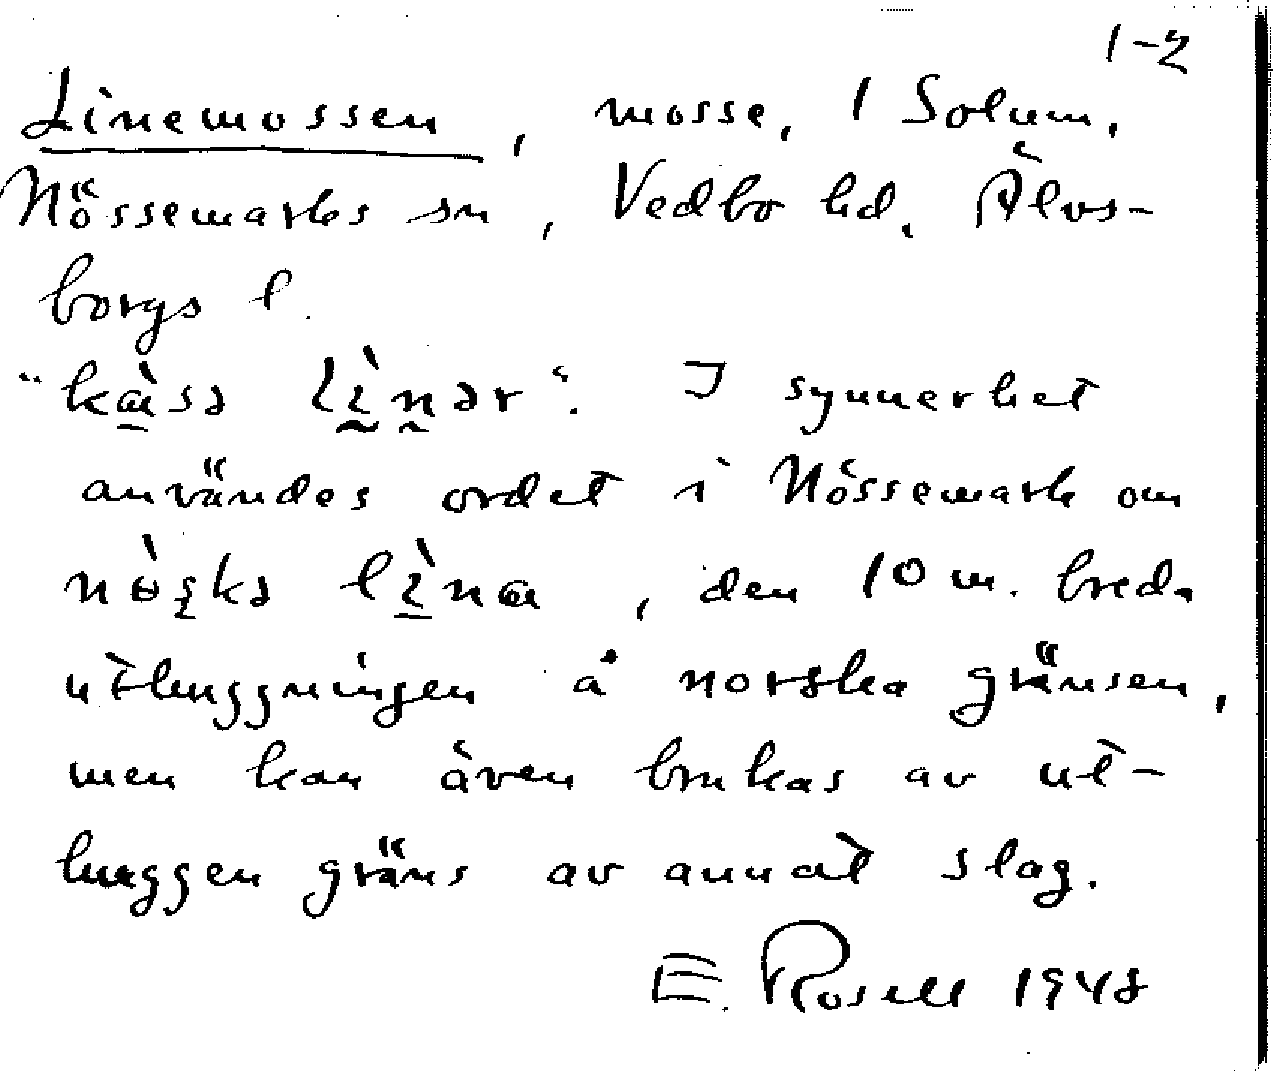 1-2
Linemossen, mosse, 1 Solum,
Nössemarks sn, Vedbo hd. Älvs-
borgs l.
"kàsə lìnər". I synnerhet
användes ordet i Nössemark om
nòşkə lìna, den 10 m. breda
uthuggningen å norska gränsen,
men kan även brukas av ut-
huggen gräns av annat slag.
E. Rosell 1948